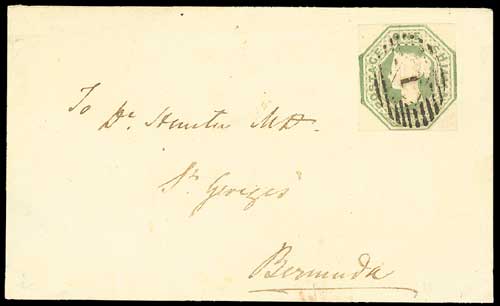 POSTAGE ONE SHILLING
1
To Dr. Hunter MD.
St. Georges
Bermuda